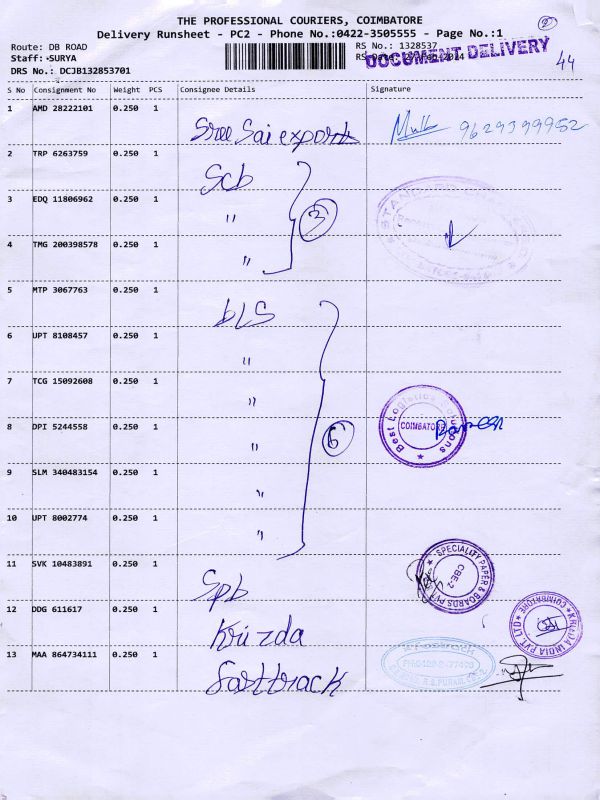 THE PROFESSIONAL COURIERS, COIMBATORE
Delivery Runsheet - PC2 - Phone No.:0422-3505555 - Page No.:1
2
Route: DB ROAD
RS No.: 1328537
Staff: SURYA
DOCUMENT DELIVERY
DRS No.: DCJB132853701
44
S No Consignment No Weight PCS Consignee Details Signature
1 AMD 28222101 0.250 1 Sree Sai export 9629399952
2 TRP 6263759 0.250 1 Scb
3 EDQ 11806962 0.250 1 " 3
4 TMG 200398578 0.250 1 "
5 MTP 3067763 0.250 1 bLS
6 UPT 8108457 0.250 1 "
7 TCG 15092608 0.250 1 "
8 DPI 5244558 0.250 1 " 6 Best Logistics Solutions COIMBATORE
9 SLM 340483154 0.250 1 "
10 UPT 8002774 0.250 1 "
11 SVK 10483891 0.250 1 Spb SPECIALITY PAPER & BOARDS PVT CBE-2
12 DDG 611617 0.250 1 Krizda KRIJDA INDIA PVT LTD COIMBATORE
13 MAA 864734111 0.250 1 Fasttrack Fastrack R.S.PURAM, CBE-2